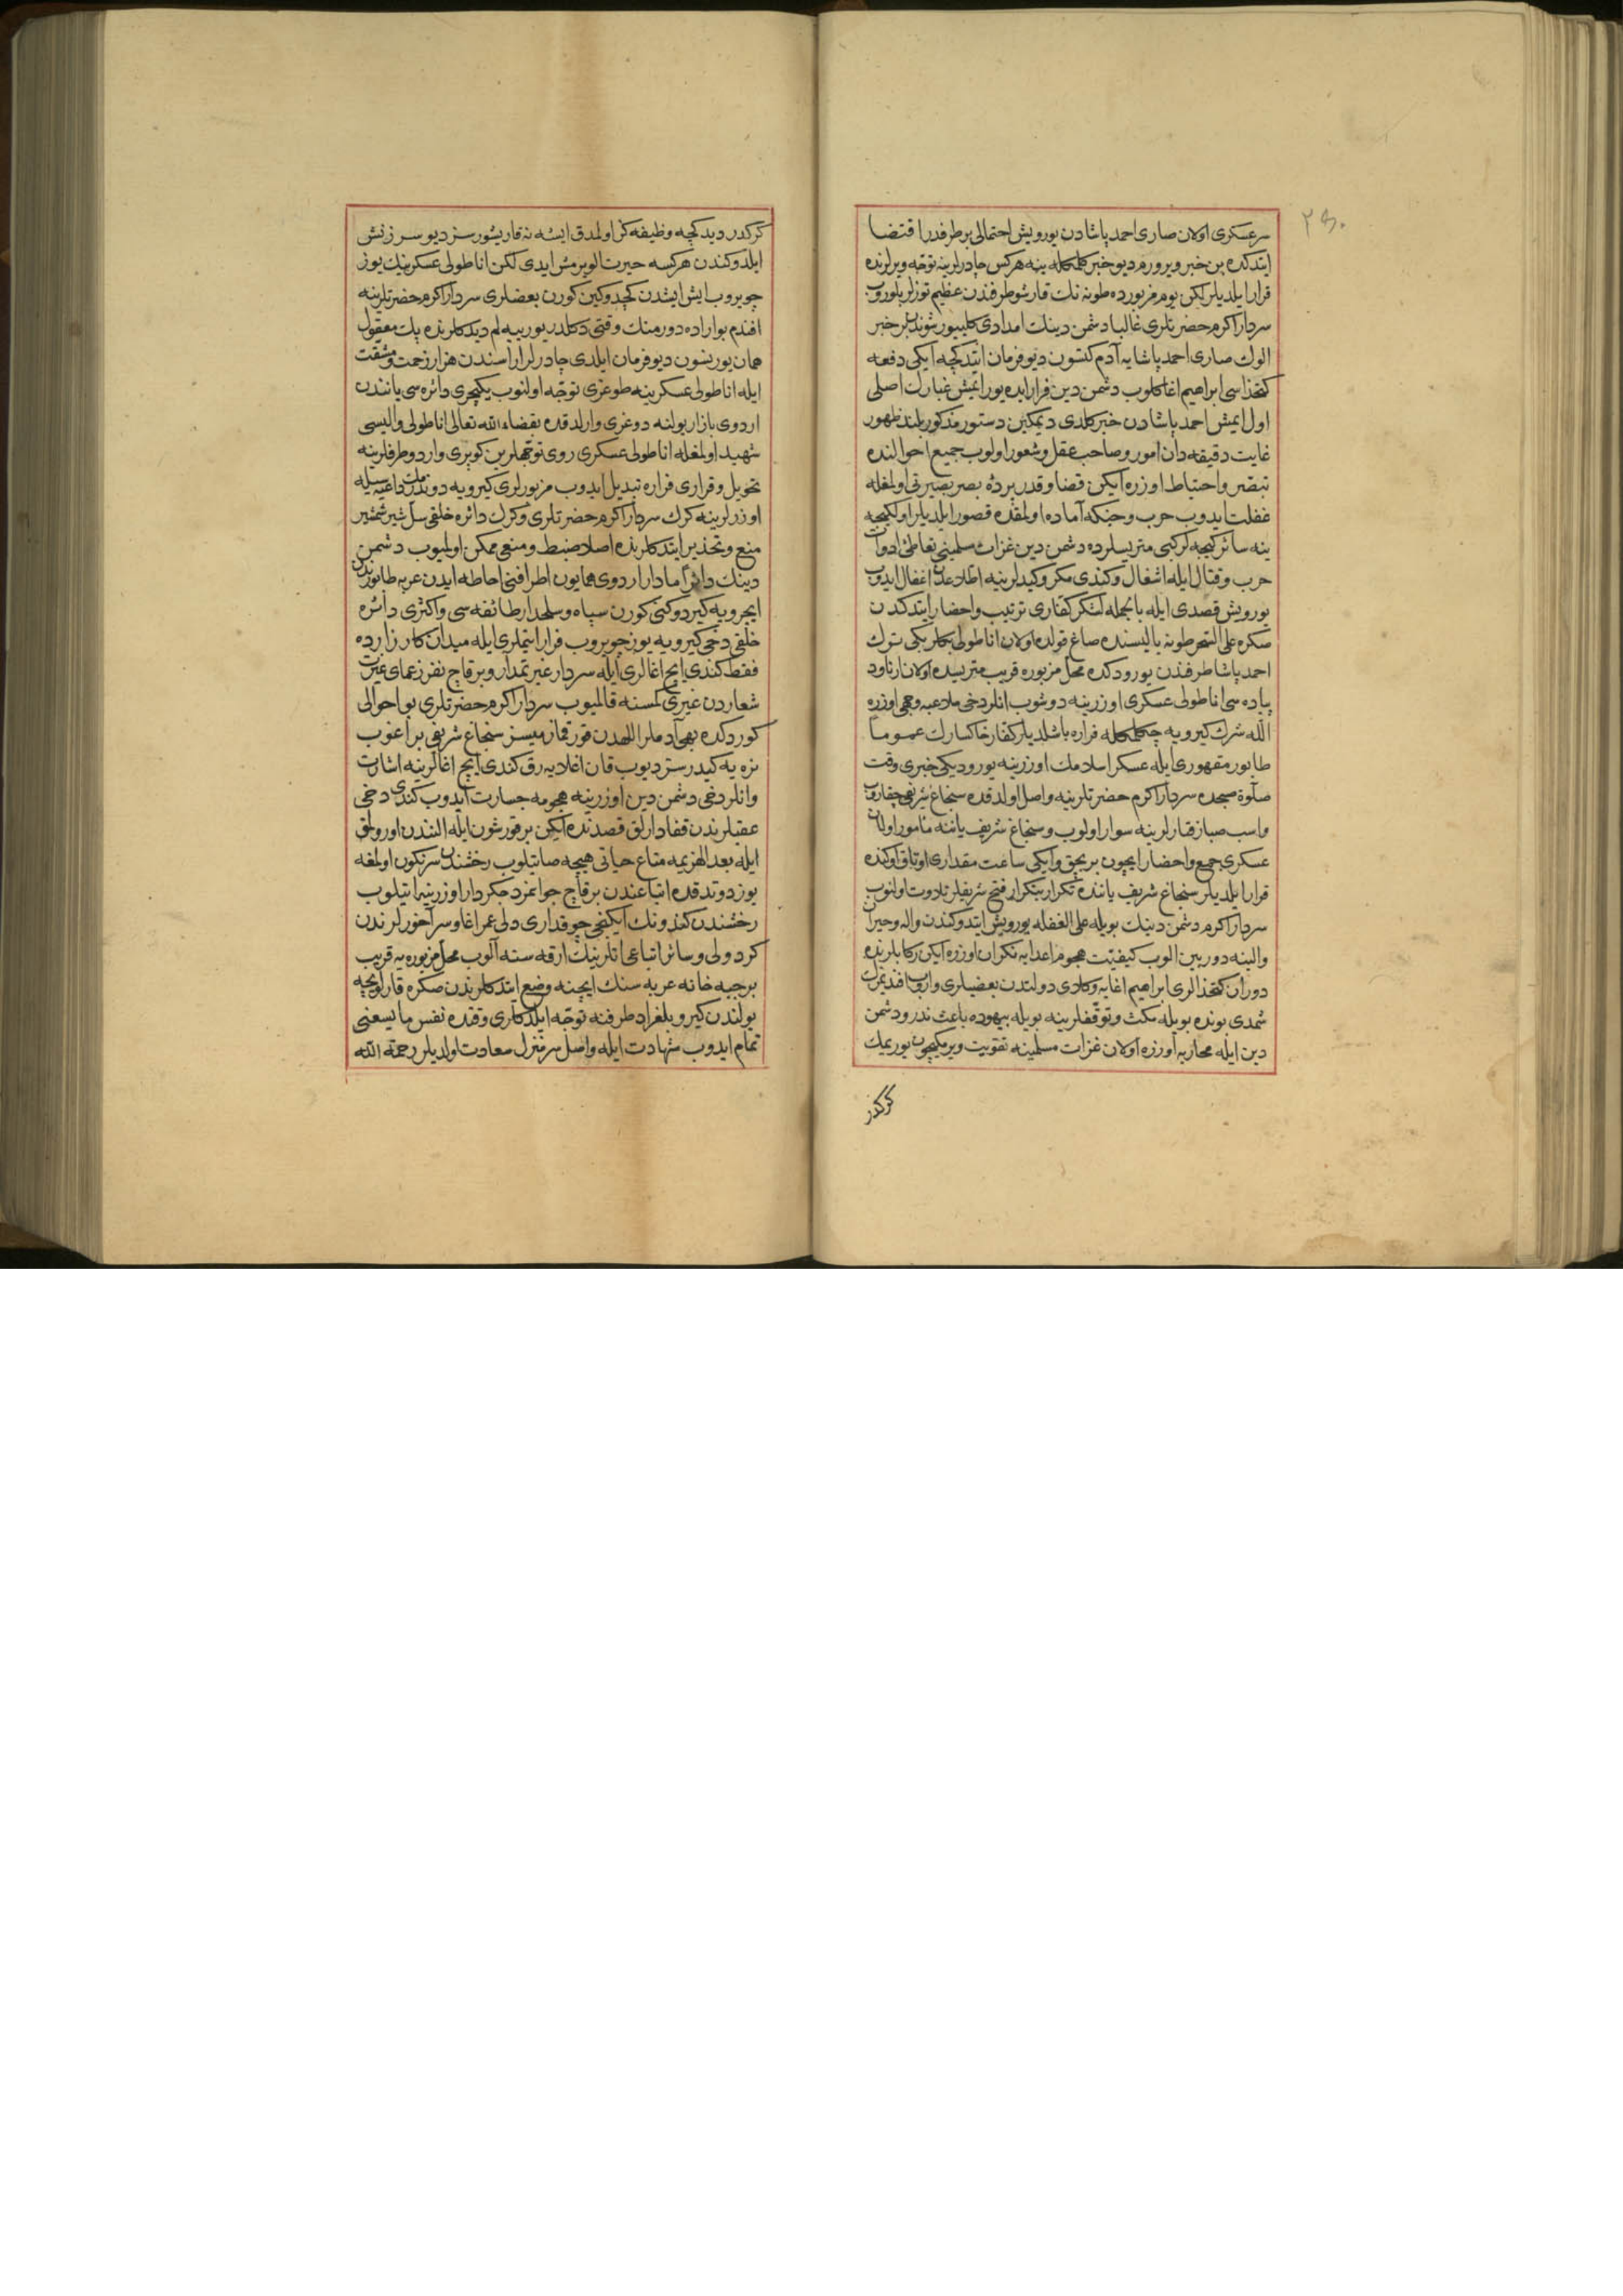 ۲۵۰
سرعسكری اولان صاری احمد پاشادن یورویش احتمالی برطرفدر اقتضا
ایتدكده بن خبر ویرورم دیو خبر كلمكله ینه هركس چادرلرینه توجه ویرلرنده
قرار ایلدیلر لكن یوم مزبورده طونه نك قارشو طرفندن عظیم توزلر بلوروب
سردار اكرم حضرتلری غالبا دشمن دینك امدادی كلییور شوندن بر خبر
الوك صاری احمد پاشایه آدم كتسون دیو فرمان ایتدكچه ایكی دفعه
كتخداسی ابراهیم اغا كلوب دشمن دین فرار ایده یورایمش غبارك اصلی
اول ایمش احمد پاشادن خبر كلدی دیمكین دستور مذكور بلند ظهور
غایت دقیقه دان امور وصاحب عقل وشعور اولوب جمیع احوالنده
تبصر واحتیاط اوزره ایكن قضا وقدر پردهٔ بصر بصیرتی اولمغله
غفلت ایدوب حرب وجنكه آماده اولمقده قصور ایلدیلر اولكیجه
ینه سائر كیجه لر كبی متریسلرده دشمن دین غزات مسلمینی تعاطیٔ ادوات
حرب وقتال ایله اشغال وكندی مكر وكیدلرینه اطلاعدن اغفال ایدوب
یورویش قصدی ایله بالجمله لشكر كفاری ترتیب واحضار ایتدكدن
صكره علی السحر طونه یالیسنده صاغ قولده اولان اناطولی بكلربكی ترك
احمد پاشا طرفندن یورودكده محل مزبوره قریب متریسده اولان ارناود
پیاده سی اناطولی عسكری اوزرینه دوشوب انلر دخی ملاعبه وجهی اوزره
الله شرك كیرویه چكلمكله فراره باشلدیلر كفار خاكسارك عموما
طابور مقهوری ایله عسكر اسلامك اوزرینه یورودیكی خبری وقت
صلوة صبحده سردار اكرم حضرتلرینه واصل اولدقده سنجاغ شریفی چقاروب
واسب صبارفتارلرینه سوار اولوب وسنجاغ شریف یاننه مأمور اولان
عسكری جمع واحضار ایچون بربچق وایكی ساعت مقداری اوتاق اوكنده
قرار ایلدیلر سنجاغ شریف یاننده تكرار بتكرار فتح شریفلر تلاوت اولنوب
سردار اكرم دشمن دینك بویله علی الغفله یورویش ایتدوكندن واله وحیران
والینه دوربین الوب كیفیت هجوم اعدایه نكران اوزره ایكن ركابلرنده
دوران كتخدالری ابراهیم اغایه وكلای دولتدن بعضیلری واروب افندیمزك
شمدی بونده بویله مكث وتوقفلرینه بویله بیهوده باعث ندر دشمن
دین ایله محاربه اوزره اولان غزات مسلمینه تقویت ویرمكیچون یوریمك
كركدر
كركدر دیدكچه وظیفه كز اولمدق ایشه نه قاریشورسز دیو سرزنش
ایلدوكندن هركسه حیرت الویرمش ایدی لكن اناطولی عسكرینك یوز
چویروب ایش ایشدن كچدوكین كورن بعضلری سردار اكرم حضرتلرینه
افندم بواراده دورمنك وقتی دكلدر یورییه لم دیدكلرنده پك معقول
همان یوریسون دیو فرمان ایلدی چادرلر اراسندن هزار زحمت ومشقت
ایله اناطولی عسكرینه طوغری توجه اولنوب یكیچری دائره سی یانندن
اردوی بازار یولنه دوغری وارلدقده بقضاء الله تعالی اناطولی والیسی
شهید اولمغله اناطولی عسكری روی توجهلرین كوپری واردو طرفلرینه
تحویل وقراری فراره تبدیل ایدوب مزبورلری كیرویه دوندرمك داعیه سیله
اوزرلرینه كرك سردار اكرم حضرتلری وكرك دائره خلقی سل شیر شمشیر
منع وتحذیر ایتدكلرنده اصلا ضبط ومنعی ممكن اولمیوب دشمن
دینك دائرا مادار اردوی همایون اطرافنی احاطه ایدن عربه طابورندن
ایچرویه كیردوكنی كورن سپاه وسلحدار طائفه سی واكثری دائره
خلقی دخی كیرویه یوز چویروب فرار ایتملری ایله میدان كارزارده
فقط كندی ایچ اغالری ایله سردار غیرتمدار وبر قاچ نفر زعمای غیرت
شعاردن غیری كمسنه قالمیوب سردار اكرم حضرتلری بو احوالی
كوردكده بهی آدملر اللهدن قورقماز میسز سنجاغ شریفی براغوب
نره یه كیدرسز دیوب قان اغلایه رق كندی ایچ اغالرینه اشارت
وانلر دخی دشمن دین اوزرینه هجومه جسارت ایدوب كندی دخی
عقبلرندن قفادارلق قصدنده ایكن بر قورشون ایله النندن اورولمق
ایله بعد الهزیمه متاع حیاتی هیچه صایتلوب رخشندن سرنكون اولمغه
یوز دوتدقده اتباعندن بر قاچ جوانمرد جكردار اوزرینه اتیلوب
رخشندن كندونك ایكنجی چوقداری دلی عمر اغا وسرآخورلرندن
كرد ولی وسائر اتباعی اتلرینك ارقه سنه آلوب محل مزبوره یه قریب
بر جبه خانه عربه سنك ایچنه وضع ایتدكلرندن صكره قارلویچه
یولندن كیرو بلغراد طرفنه توجه ایلدكلری وقتده نفس ما یسعنی
تمام ایدوب شهادت ایله واصل سرمنزل سعادت اولدیلر رحمة الله